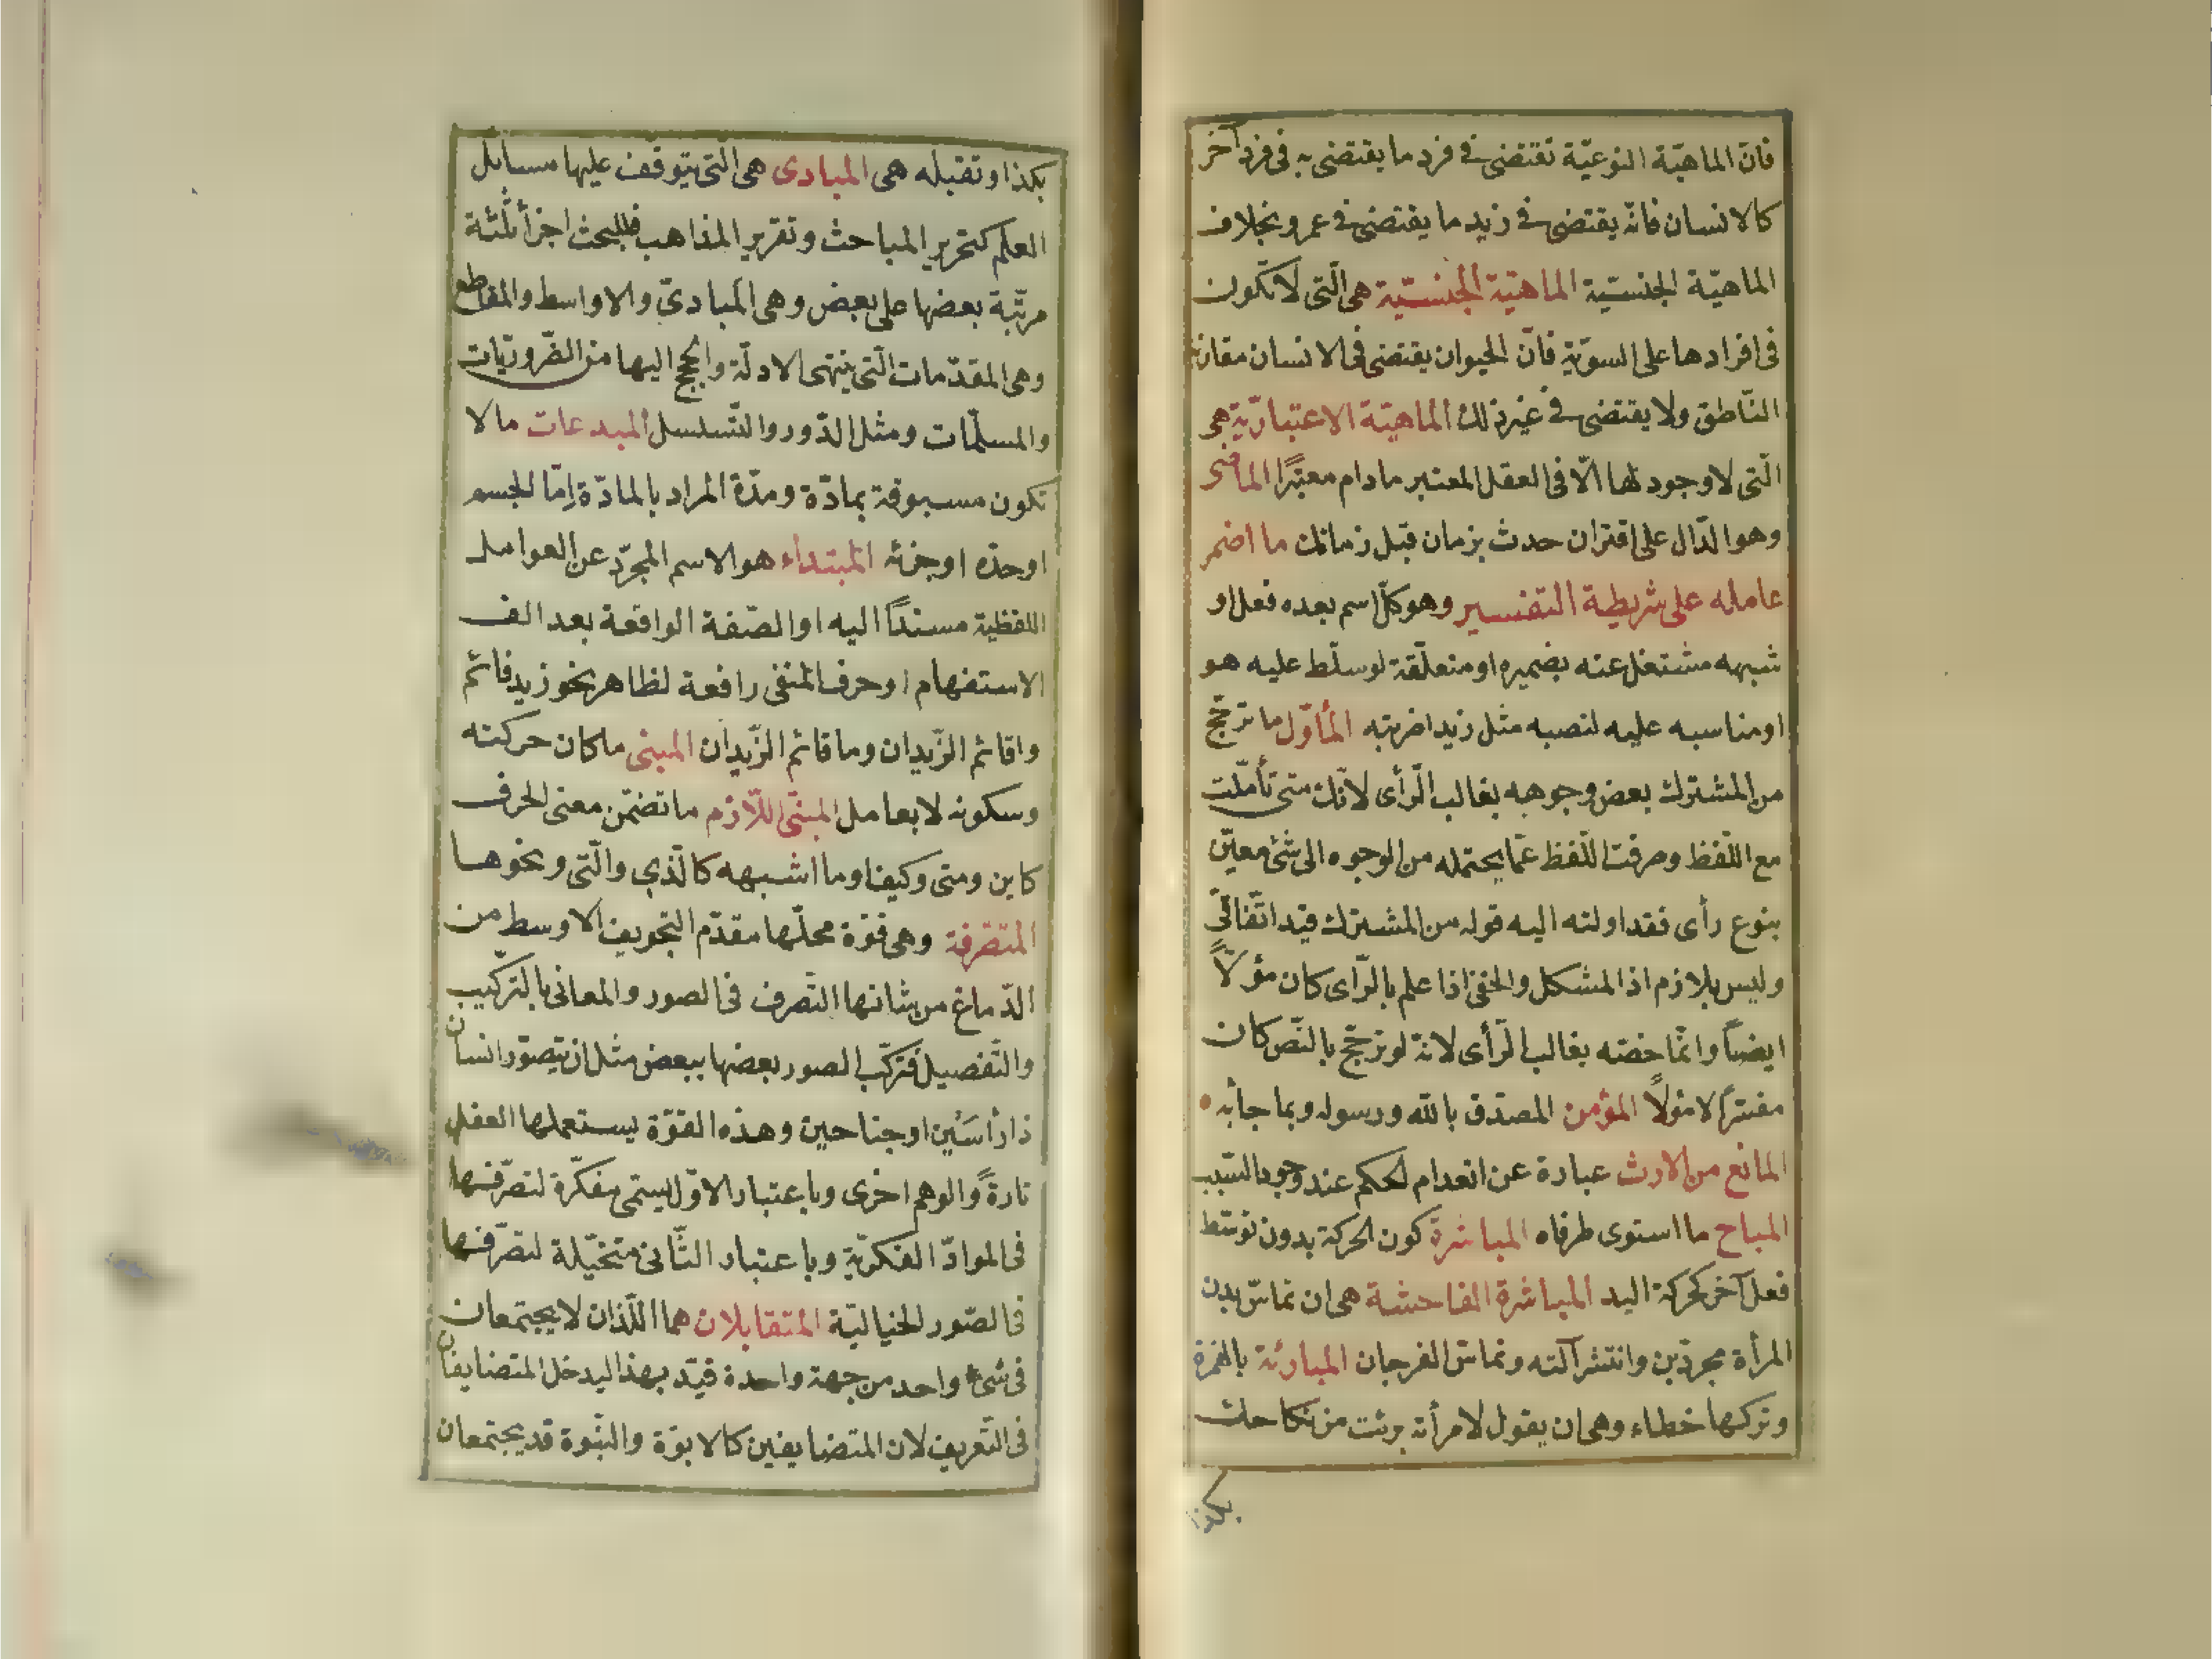 فانّ الماهيّة النوعيّة تقتضى فى فرد ما يقتضى به فى فرد آخر
كالانسان فانّه يقتضى فى زيد ما يقتضى فى عمرو بخلاف
الماهيّة الجنسيّة الماهيّة الجنسيّة هى الّتى لا تكون
فى افرادها على السويّة فانّ الحيوان يقتضى فى الانسان مقارنة
النّاطق ولا يقتضى فى غير ذلك الماهيّة الاعتباريّة هى
الّتى لا وجود لها الّا فى العقل المعتبر ما دام معتبرًا الماضى
وهو الدّال على اقتران حدث بزمان قبل زمانك ما اضمر
عامله على شريطة التفسير وهو كلّ اسم بعده فعل او
شبهه مشتغل عنه بضميره او متعلّقة لو سلّط عليه هو
او مناسبه عليه لنصبه مثل زيدا ضربته المأوّل ما ترجّح
من المشترك بعض وجوهه بغالب الرّأى لانّك متى تأمّلت
مع اللّفظ وصرفت اللّفظ عمّا يحتمله من الوجوه الى شئ معيّن
بنوع رأى فقد اولته اليه قوله من المشترك قيد اتّفاقّى
وليس بلازم اذ المشكل والخفى اذا علم بالرّاى كان مؤلًّا
ايضًا وانّما خصّه بغالب الرّأى لانّه لو ترجّح بالنّص كان
مفسّرًا لا مؤلًّا المؤمن المصدّق بالله ورسوله وبما جأ به
المانع من الارث عبارة عن انعدام الحكم عند وجود السّبب
المباح ما استوى طرفاه المباشرة كون الحركة بدون توسّط
فعل آخر كحركة اليد المباشرة الفاحشة هى ان تماسّ بدن
المرأة مجرّدين وانتشر آلته وتماسّ الفرجان المبارئة بالهمزة
وتركها خطاء وهى ان يقول لامرأته برئت من نكاحك
بكذا
بكذا وتقبله هى المبادى هى الّتى يتوقّف عليها مسايل
العلم كتحرير المباحث وتقرير المذاهب فللبحث اجزأ ثلثة
مرتّبة بعضها على بعض وهى المباديّ والاواسط والمقاطع
وهى المقدّمات الّتى ينتهى الادلّة والحجج اليها من الضّروريّات
والمسلّمات ومثل الدّور والتّسلسل المبدعات ما لا
تكون مسبوقة بمادّة ومدّة المراد بالمادّة امّا الجسم
او حدّه او جزئه المبتداء هو الاسم المجرّد عن العوامل
اللفظية مسندًا اليه او الصّفة الواقعة بعد الف
الاستفهام او حرف النفى رافعة لظاهر نحو زيد قائم
واقائم الزّيدان وما قائم الزّيدان المبنى ما كان حركته
وسكونه لا بعامل المبنّى اللّازم ما تضمّن معنى الحرف
كاين ومتى وكيف او ما اشبهه كالّذى والّتى ونحوها
المتصرّفة وهى قوّة محلّها مقدّم التجويف الاوسط من
الدّماغ من شانها التصرف فى الصور والمعانى بالتركّيب
والتّفصيل فتركّب الصور بعضها ببعض مثل ان يتصوّر انسان
ذا رأسين او جناحين وهذه القوّة يستعملها العقل
تارةً والوهم اخرى وباعتبار الاوّل يسمّى مفكّرة لتصرّفها
فى الموادّ الفكريّة وباعتبار الثّانى متخيّلة لتصرّفها
فى الصّور الخياليّة المتقابلان هما اللّذان لا يجتمعان
فى شئ واحد من جهة واحدة قيّد بهذا ليدخل المتضايفان
فى التّعريف لان المتضايفين كالابوّة والبنّوة قد يجتمعان